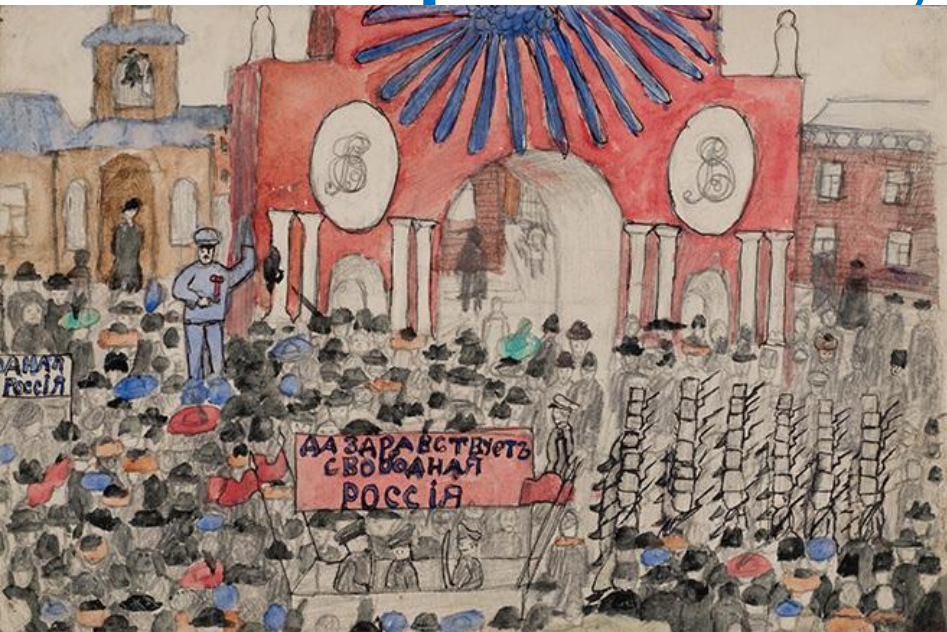 ДНАЯ
РОССІЯ
ДА ЗДРАВСТВУЕТЪ
СВОБОДНАЯ
РОССІЯ